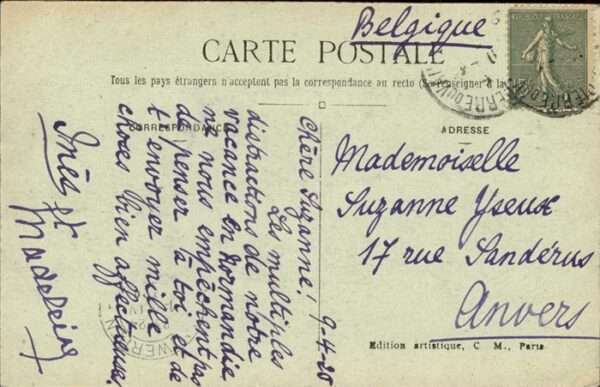 Belgique
CARTE POSTALE
Tous les pays étrangers n'acceptent pas la correspondance au recto (Se renseigner à la
CORRESPONDANCE
ADRESSE
9-4-20
Chère Suzanne!
Les multiples
distractions de notre
vacance en Normandie
ne nous empêchent pas
de penser à toi et de
t'envoyer mille
choses bien affectueuses.
Inès et
Madeleine
Mademoiselle
Suzanne Yseux
17 rue Sandérus
Anvers
Edition artistique, C. M., Paris